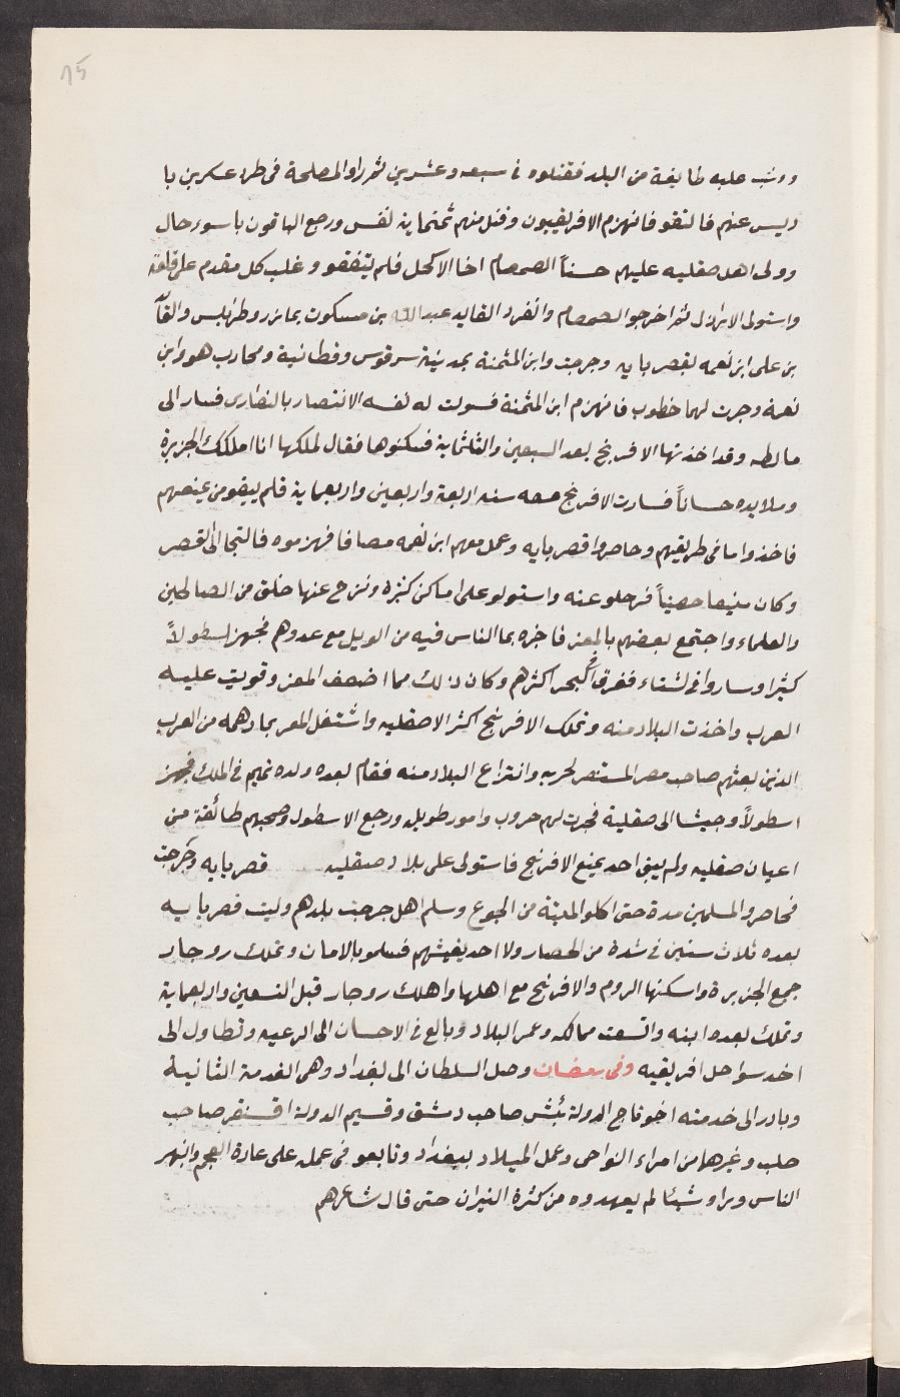 15
ووثب عليه طايفة من البلد فقتلوه في سبعه وعشرين ثم راوا المصلحة في طرد عسكر بن با
ديس عنهم فالتقو فانهزم الافريقيون وقتل منهم ثمنماية نفس ورجع الباقون باسوء حال
وولى اهل صقليه عليهم حسناً الصمصام اخا الاكحل فلم يتفقو وغلب كل مقدم على قلعة
واستولى الاراذل ثم اخرجوا الصمصام وانفرد القايد عبد الله بن مسكوت بمازر وطرابلس والقآ
بن علي ابن نعمه بقصر بايه وجرجت وابن المثمنة بمدينة سرقوس وقطانية ومحارب هو وابن
نعمة وجرت لهما خطوب فانهزم ابن المثمنة فسولت له نفسه الانتصار بالنصارى فسار الى
مالطه وقد اخذتها الافرنج بعد السبعين والثلثماية فسكنوها فقال لملكها انا املكك الجزيرة
وملا يده حساناً فسارت الافرنج معه سنه اربعة واربعين واربعماية فلم يلقو من يمنعهم
فاخذوا ما في طريقهم وحاصروا قصر بايه وعمل معهم ابن نعمه مصافا فهزموه فالتجا الى القصر
وكان منيعا حصيناً فرحلو عنه واستولو على اماكن كثيره ونزح عنها خلق من الصالحين
والعلماء واجتمع بعضهم بالمعز فاخبره بما الناس فيه من الويل مع عدوهم فجهز اسطولاً
كثيرا وساروا في الشتاء فغرق البحر اكثرهم وكان ذلك مما اضعف المعز وقويت عليه
العرب واخذت البلاد منه وتملك الافرنج اكثر الاصقليه واشتغل المعز بما دهمه من العرب
الذين بعثهم صاحب مصر المستنصر لحربه وانتزاع البلاد منه فقام بعده ولده تميم في الملك فجهز
اسطولاً وجيشا الى صقلية فجرت لهم حروب وامور طويله ورجع الاسطول وصحبهم طائفة من
اعيان صقليه ولم يبق احد يمنع الافرنج فاستولى على بلاد صقليه قصر بايه وجرجت
فحاصرو المسلمين مدة حتى اكلو الميتة من الجوع وسلم اهل جرجت بلدهم ولبث قصر بايه
بعده ثلاث سنين في شدة من الحصار ولا احد يغيثهم فسلمو بالامان وتملك روجار
جمع الجزيرة واسكنها الروم والافرنج مع اهلها واهلك روجار قبل التسعين واربعماية
وتملك بعده ابنه واتسعت ممالكه وعمر البلاد وبالغ في الاحسان الى الرعيه وتطاول الى
اخد سواحل افريقيه وفي رمضان وصل السلطان الى بغداد وهي القدمة الثانية
وبادر الى خدمته اخو تاج الدولة تتش صاحب دمشق وقسيم الدولة اقسنقر صاحب
حلب وغيرها من امراء النواحي وعمل الميلاد ببغداد وتابعو في عمله على عادة العجم وانبهر
الناس وراو شيئا لم يعهدوه من كثرة النيران حتى قال شاعرهم